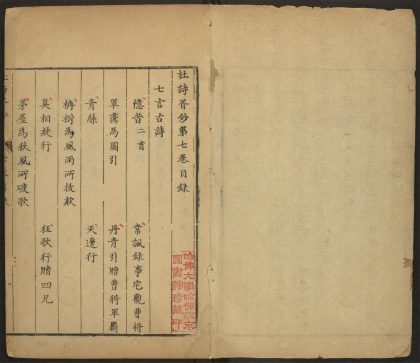 杜詩胥鈔第七卷目錄
七言古詩
憶昔二首 韋諷錄事宅觀曹將
軍畫馬圖引 丹青引贈曹將軍霸
青絲 天邊行
柟樹為風雨所拔歎
莫相疑行 狂歌行贈四兄
茅屋為秋風所破歌
哈佛大學哈佛燕京
圖書館珍藏印